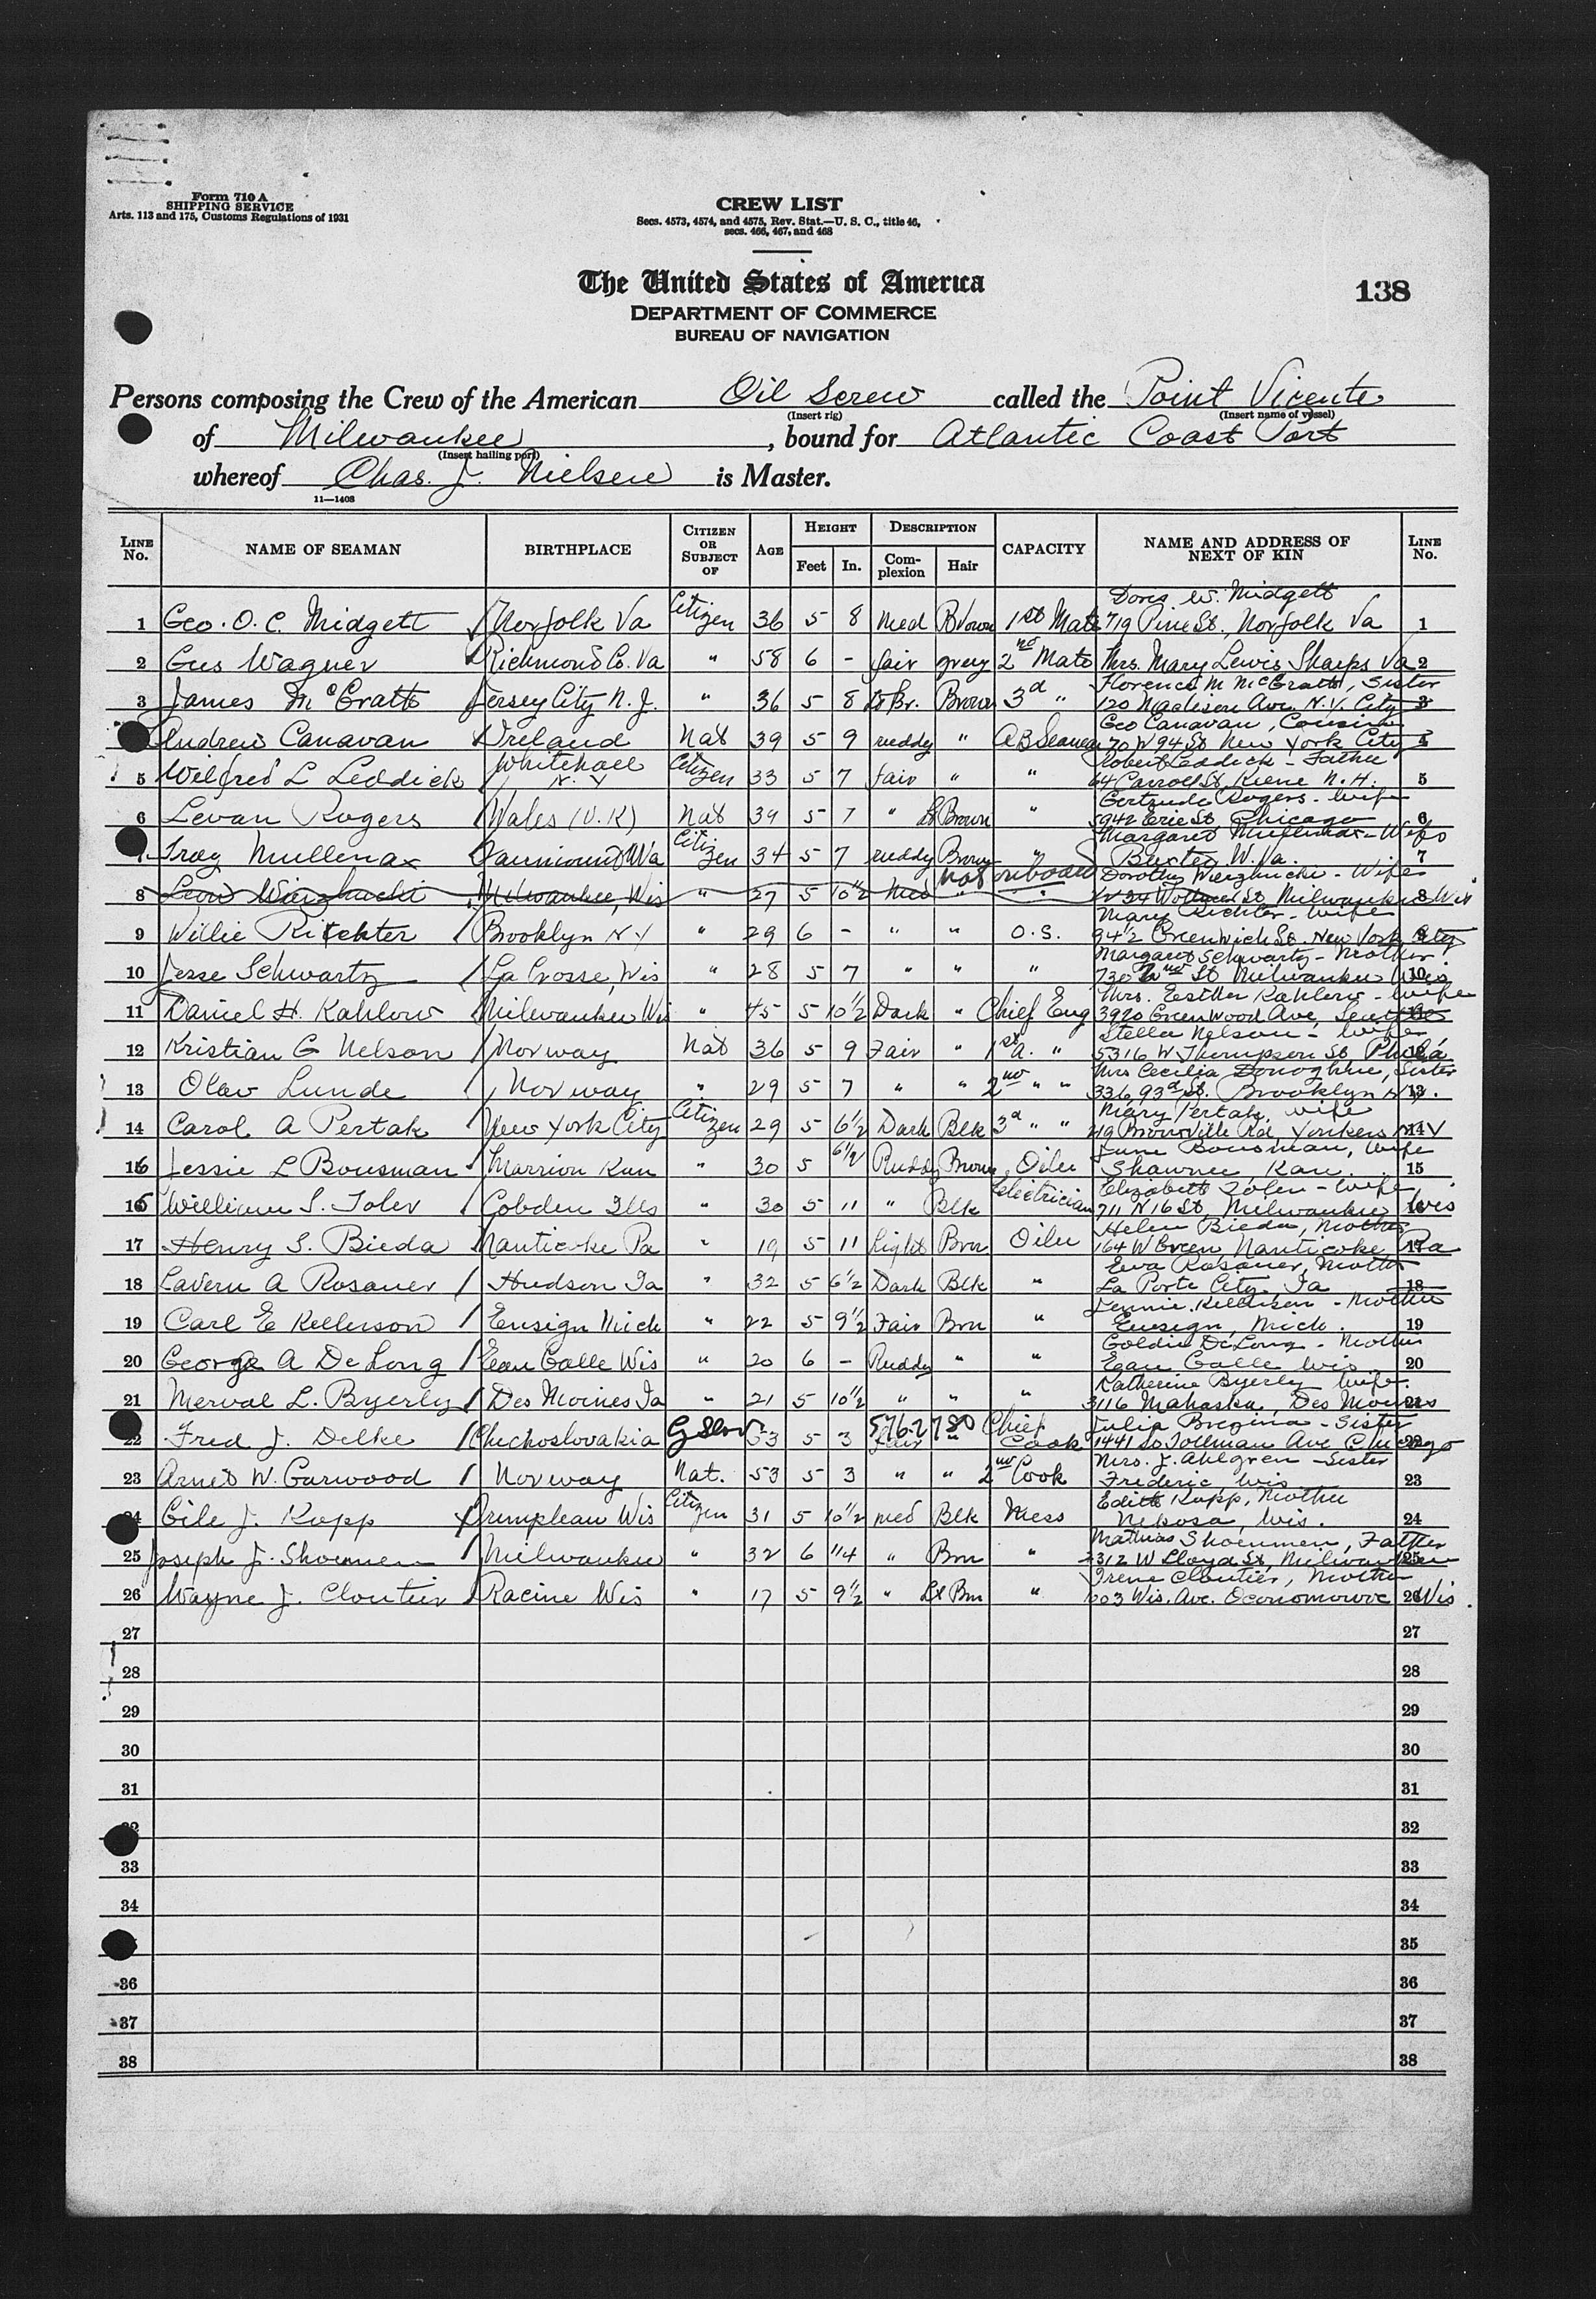 Form 710 A
SHIPPING SERVICE
Arts. 113 and 175, Customs Regulations of 1931
CREW LIST
Secs. 4573, 4574, and 4575, Rev. Stat.—U. S. C., title 46,
secs. 466, 467, and 468
The United States of America
DEPARTMENT OF COMMERCE
BUREAU OF NAVIGATION
138
Persons composing the Crew of the American Oil Screw called the Point Vicente
(Insert rig) (Insert name of vessel)
of Milwaukee, bound for Atlantic Coast Port
(Insert hailing port)
whereof Chas. J. Nielsen is Master.
11—1408
LINE No. NAME OF SEAMAN BIRTHPLACE CITIZEN OR SUBJECT OF AGE HEIGHT Feet In. DESCRIPTION Complexion Hair CAPACITY NAME AND ADDRESS OF NEXT OF KIN LINE No.
Doris W. Midgett
1 Geo. O. C. Midgett Norfolk Va Citizen 36 5 8 Med Brown 1st Mate 719 Pine St., Norfolk Va 1
2 Gus Wagner Richmond Co. Va " 58 6 - fair grey 2nd Mate Mrs. Mary Lewis Sharps Va 2
Florence M McGrath, Sister
3 James McGrath Jersey City N. J. " 36 5 8 Br. Brown 3d " 120 Madison Ave. N.Y. City 3
Geo Canavan, Cousin
Andrew Canavan Ireland Nat 39 5 9 ruddy " AB Seaman 70 W 94 St New York City
Robert Leddick - Father
5 Wilfred L Leddick Whitehall N. Y Citizen 33 5 7 fair " " 64 Carroll St, Keene N. H. 5
Gertrude Rogers - wife
6 Levan Rogers Wales (U.K) Nat 39 5 7 " Lt Brown " 5942 Erie St Chicago 6
Margaret Mullenax - Wife
Troy Mullenax Citizen 34 5 7 ruddy Brown " Buxter W. Va. 7
Not onboard Dorothy - Wife
8 Milwaukee, Wis " 27 5 10½ Med " " St Milwaukee Wis 8
Mary Richter - wife
9 Willie Richter Brooklyn N Y " 29 6 - " " O. S. 94½ Greenwich St. New York City 9
Margaret Schwartz - Mother
10 Jesse Schwartz La Crosse, Wis " 28 5 7 " " " St Milwaukee Wis 10
Mrs. Eesther Kahlow - wife
11 Daniel H. Kahlow Milwaukee Wis " 45 5 10½ Dark " Chief Eng 3920 Greenwood Ave, Seattle 11
Stella Nelson - wife
12 Kristian G Nelson Norway Nat 36 5 9 Fair " 1st A. " 5316 W Thompson St Phila 12
Mrs Cecilia Donoghue, Sister
13 Olav Lunde Norway " 29 5 7 " " 2nd " " 336, 93d St. Brooklyn N Y. 13
Mary Pertak, wife
14 Carol A Pertak New York City Citizen 29 5 6½ Dark Blk 3d " " Yonkers N Y 14
June Bousman, wife
15 Jessie L Bousman Marrion Kan " 30 5 6½ Ruddy Brown Oiler Shawnee Kan. 15
Elizabeth Toler - wife
16 William S. Toler Cobden Ills " 30 5 11 " Blk Electrician 711 N 16 St, Milwaukee, Wis 16
Helen Bieda, Mother
17 Henry S. Bieda Nanticoke Pa " 19 5 11 Light Brn Oiler 164 W Green, Nanticoke, Pa 17
Eva Rosauer, Mother
18 Lavern A Rosauer Hudson Ia " 32 5 6½ Dark Blk " La Porte City, Ia 18
Jennie Kellerson - Mother
19 Carl E Kellerson Ensign Mich " 22 5 9½ Fair Brn " Ensign, Mich. 19
Goldie DeLong - Mother
20 George A DeLong Eau Galle Wis " 20 6 - Ruddy " " Eau Galle Wis 20
Katherine Byerly Wife.
21 Merval L. Byerly Des Moines Ia " 21 5 10½ " " " 3116 Mahaska, Des Moines 21
5762780 Julia Bregina - Sister
22 Fred J. Delke Chechoslovakia 53 5 3 fair " Chief Cook 1441 So Tollman Ave Chicago 22
Mrs. J. Ahlgren - Sister
23 Arnet W. Garwood Norway Nat. 53 5 3 " " 2nd Cook Frederic, Wis 23
Edith Kopp, Mother
24 Cile J. Kopp Trempleau Wis Citizen 31 5 10½ med Blk Mess Nekosa, Wis. 24
Mathias Shoenmen, Father
25 Joseph J. Shoenmen Milwaukee " 32 6 1¼ " Brn " 2312 W Lloyd St, Milwaukee 25
Irene Cloutier, Mother
26 Wayne J. Cloutier Racine Wis " 17 5 9½ " Lt Brn " 603 Wis. Ave. Oconomowoc Wis. 26
27 27
28 28
29 29
30 30
31 31
32 32
33 33
34 34
35
36 36
37 37
38 38